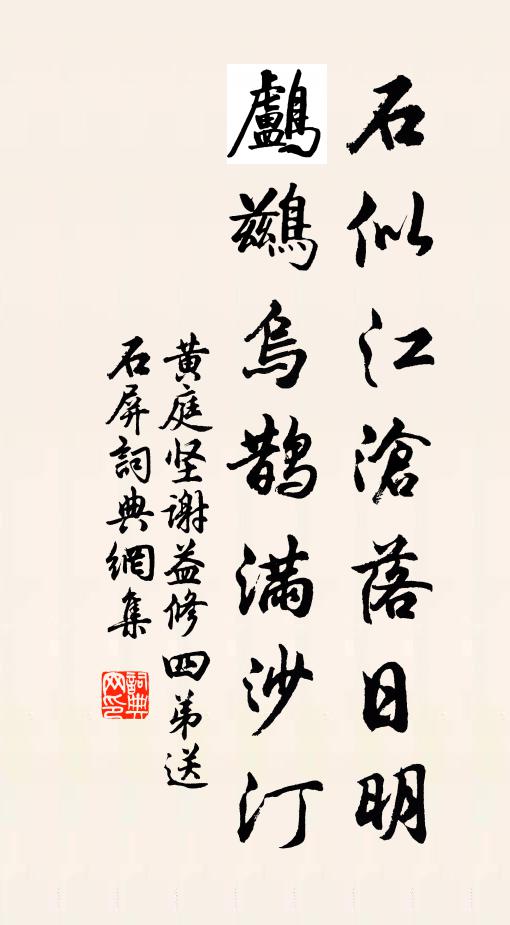 石似江滄落日明
鸕鷀烏鵲滿沙汀
黄庭坚谢益修四弟送
石屏詞典網集
詞典网印